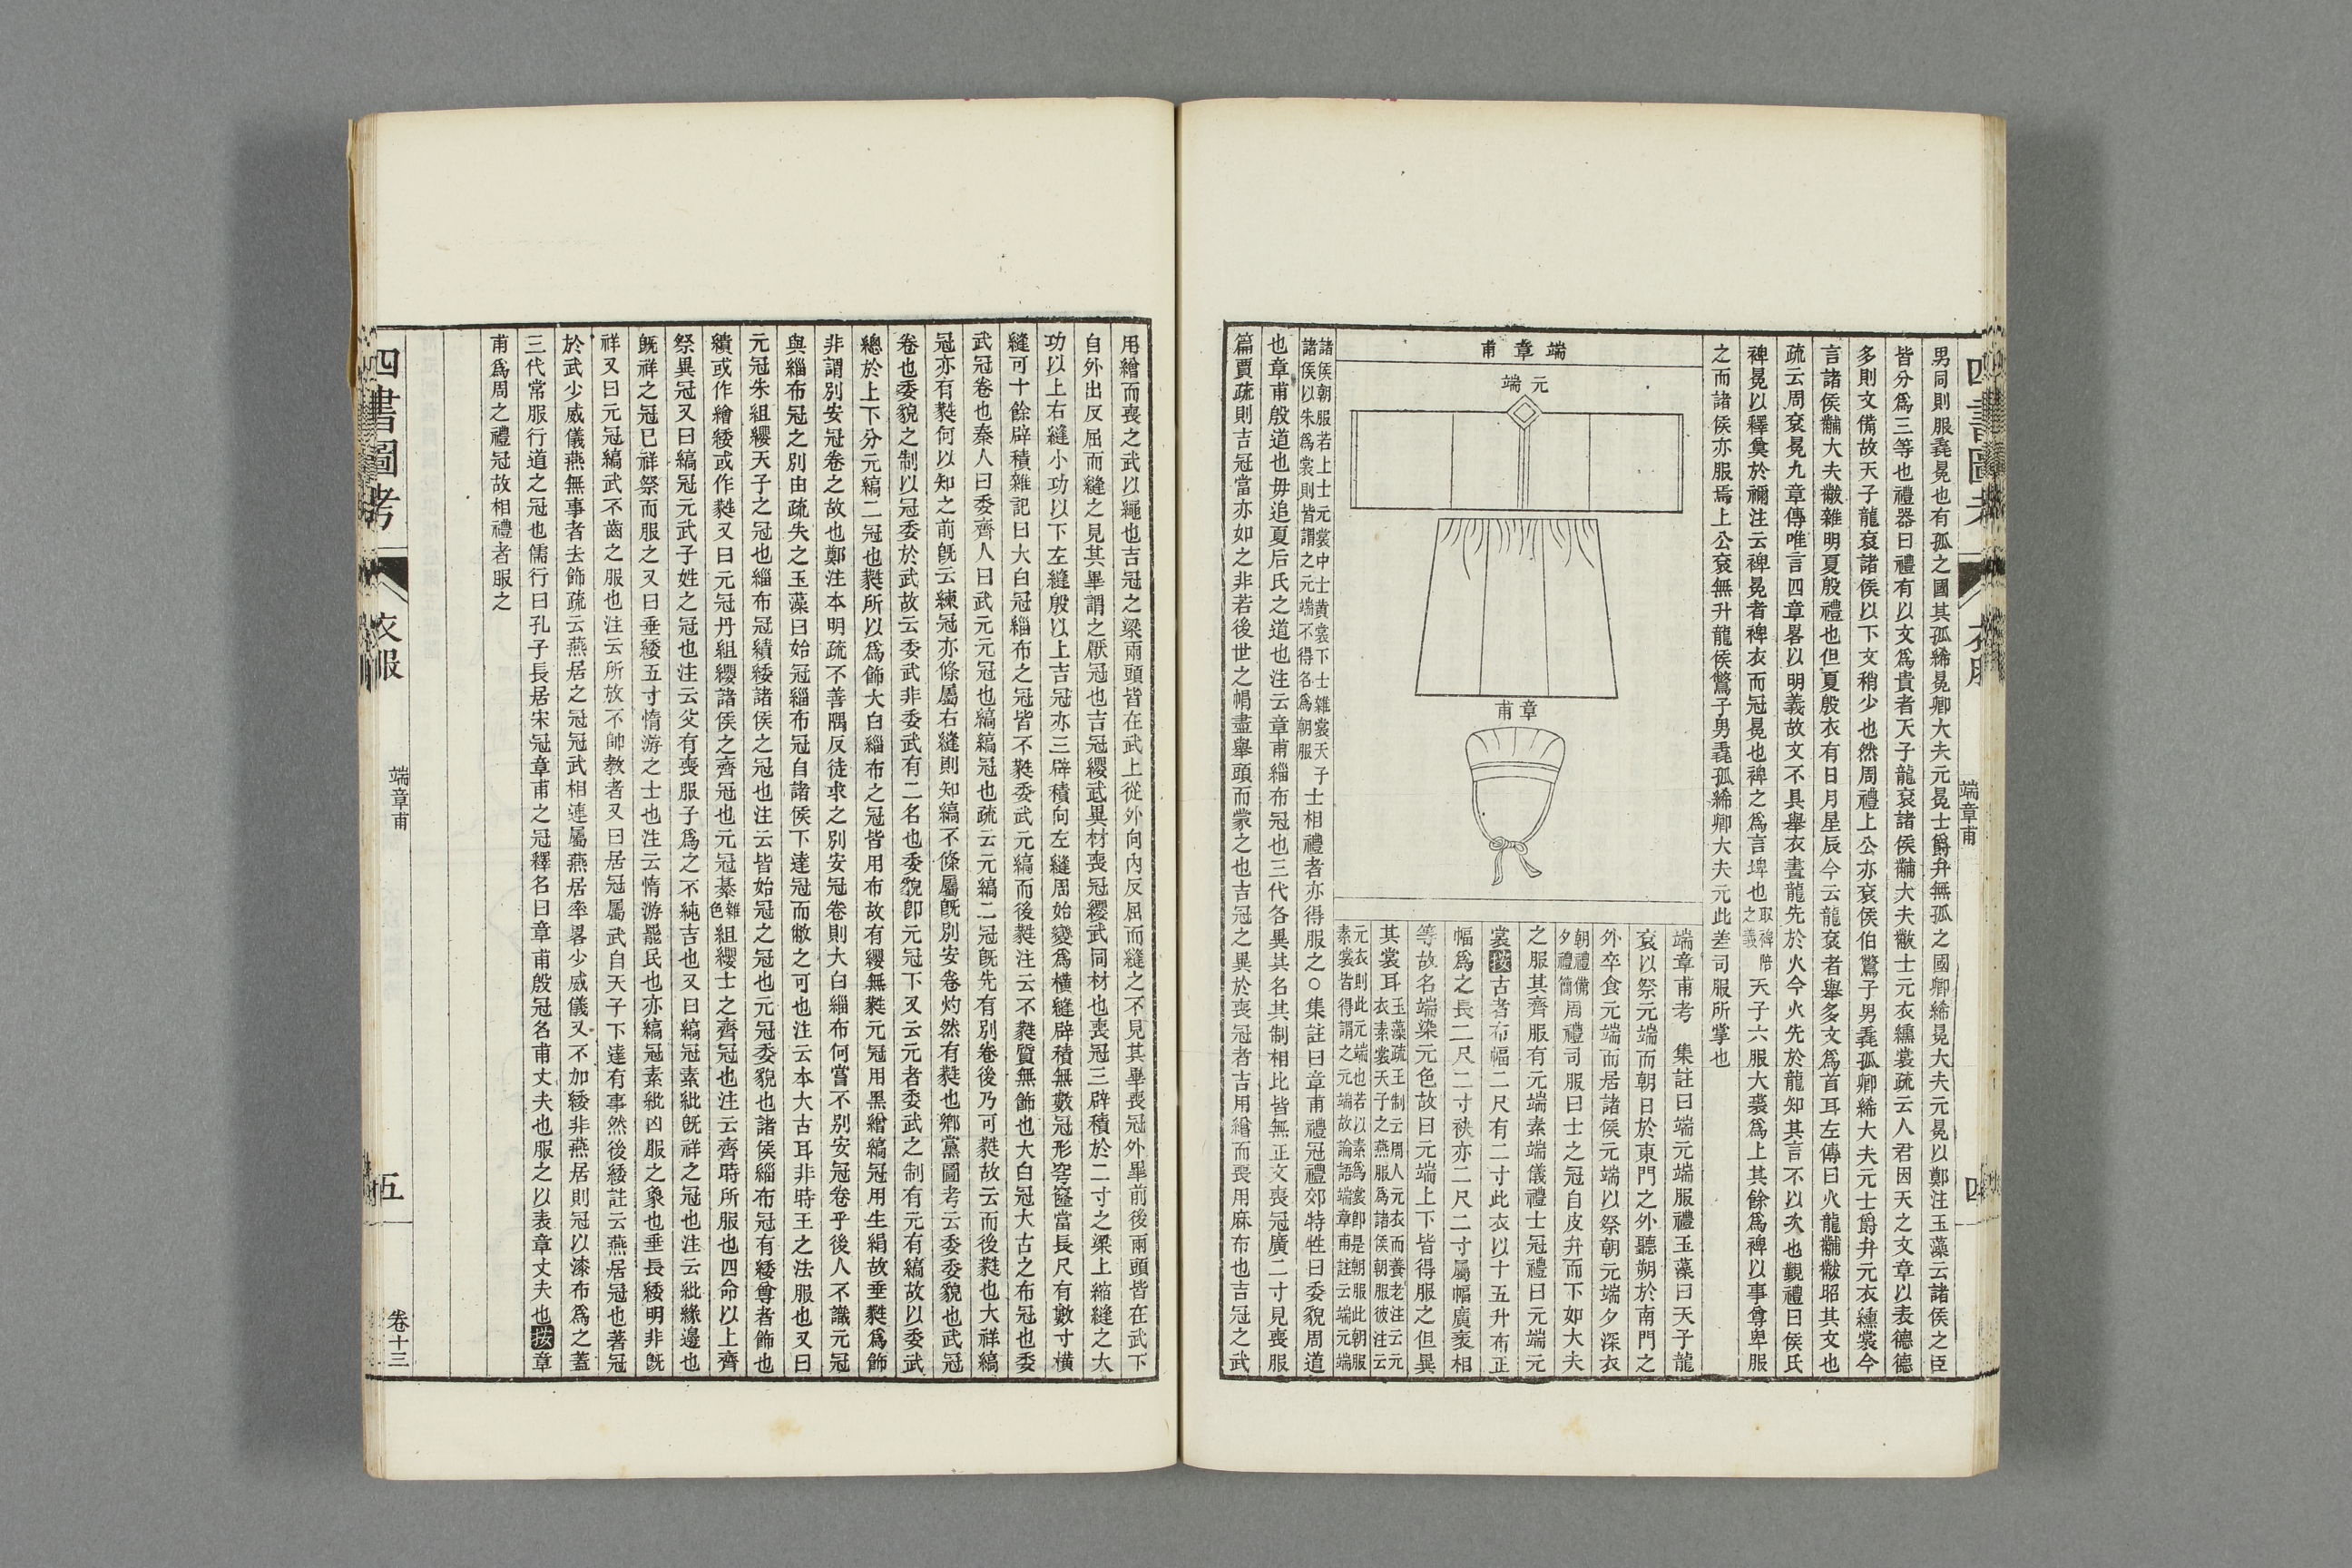 四書圖考
衣服
端章甫
四
男同則服毳冕也有孤之國其孤絺冕卿大夫元冕士爵弁無孤之國卿絺冕大夫元冕以鄭注玉藻云諸侯之臣
皆分爲三等也禮器曰禮有以文爲貴者天子龍袞諸侯黼大夫黻士元衣纁裳疏云人君因天之文章以表德德
多則文備故天子龍袞諸侯以下文稍少也然周禮上公亦袞侯伯鷩子男毳孤卿絺大夫元士爵弁元衣纁裳今
言諸侯黼大夫黻雜明夏殷禮也但夏殷衣有日月星辰今云龍袞者舉多文爲首耳左傳曰火龍黼黻昭其文也
疏云周袞冕九章傳唯言四章畧以明義故文不具舉衣畫龍先於火今火先於龍知其言不以次也覲禮曰侯氏
裨冕以釋奠於禰注云裨冕者裨衣而冠冕也裨之爲言埤也取裨陪之義天子六服大裘爲上其餘爲裨以事尊卑服
之而諸侯亦服焉上公袞無升龍侯鷩子男毳孤絺卿大夫元此差司服所掌也
端章甫
元端
章甫
端章甫考 集註曰端元端服禮玉藻曰天子龍
袞以祭元端而朝日於東門之外聽朔於南門之
外卒食元端而居諸侯元端以祭朝元端夕深衣
朝禮備夕禮簡周禮司服曰士之冠自皮弁而下如大夫
之服其齊服有元端素端儀禮士冠禮曰元端元
裳按古者布幅二尺有二寸此衣以十五升布正
幅爲之長二尺二寸袂亦二尺二寸屬幅廣袤相
等故名端染元色故曰元端上下皆得服之但異
其裳耳玉藻疏王制云周人元衣而養老注云元衣素裳天子之燕服爲諸侯朝服彼注云
元衣則此元端也若以素爲裳卽是朝服此朝服素裳皆得謂之元端故論語端章甫註云端元端
諸侯朝服若上士元裳中士黃裳下士雜裳天子諸侯以朱爲裳則皆謂之元端不得名爲朝服士相禮者亦得服之○集註曰章甫禮冠禮郊特牲曰委貌周道
也章甫殷道也毋追夏后氏之道也注云章甫緇布冠也三代各異其名其制相比皆無正文喪冠廣二寸見喪服
篇賈疏則吉冠當亦如之非若後世之帽盡舉頭而蒙之也吉冠之異於喪冠者吉用繒而喪用麻布也吉冠之武
用繒而喪之武以繩也吉冠之梁兩頭皆在武上從外向內反屈而縫之不見其畢喪冠外畢前後兩頭皆在武下
自外出反屈而縫之見其畢謂之厭冠也吉冠纓武異材喪冠纓武同材也喪冠三辟積於二寸之梁上縮縫之大
功以上右縫小功以下左縫殷以上吉冠亦三辟積向左縫周始變爲橫縫辟積無數冠形穹窿當長尺有數寸橫
縫可十餘辟積雜記曰大白冠緇布之冠皆不蕤委武元縞而後蕤注云不蕤質無飾也大白冠大古之布冠也委
武冠卷也秦人曰委齊人曰武元元冠也縞縞冠也疏云元縞二冠旣先有別卷後乃可蕤故云而後蕤也大祥縞
冠亦有蕤何以知之前旣云練冠亦條屬右縫則知縞不條屬旣別安卷灼然有蕤也鄉黨圖考云委委貌也武冠
卷也委貌之制以冠委於武故云委武非委武有二名也委貌卽元冠下又云元者委武之制有元有縞故以委武
總於上下分元縞二冠也蕤所以爲飾大白緇布之冠皆用布故有纓無蕤元冠用黑繒縞冠用生絹故垂蕤爲飾
非謂別安冠卷之故也鄭注本明疏不善隅反徒求之別安冠卷則大白緇布何嘗不別安冠卷乎後人不識元冠
與緇布冠之別由疏失之玉藻曰始冠緇布冠自諸侯下達冠而敝之可也注云本大古耳非時王之法服也又曰
元冠朱組纓天子之冠也緇布冠繢緌諸侯之冠也注云皆始冠之冠也元冠委貌也諸侯緇布冠有緌尊者飾也
繢或作繪緌或作蕤又曰元冠丹組纓諸侯之齊冠也元冠綦雜色組纓士之齊冠也注云齊時所服也四命以上齊
祭異冠又曰縞冠元武子姓之冠也注云父有喪服子爲之不純吉也又曰縞冠素紕旣祥之冠也注云紕緣邊也
旣祥之冠已祥祭而服之又曰垂緌五寸惰游之士也注云惰游罷民也亦縞冠素紕凶服之象也垂長緌明非旣
祥又曰元冠縞武不齒之服也注云所放不帥教者又曰居冠屬武自天子下達有事然後緌註云燕居冠也著冠
於武少威儀燕無事者去飾疏云燕居之冠冠武相連屬燕居率畧少威儀又不加緌非燕居則冠以漆布爲之蓋
三代常服行道之冠也儒行曰孔子長居宋冠章甫之冠釋名曰章甫殷冠名甫丈夫也服之以表章丈夫也按章
甫爲周之禮冠故相禮者服之
四書圖考
衣服
端章甫
五
卷十三